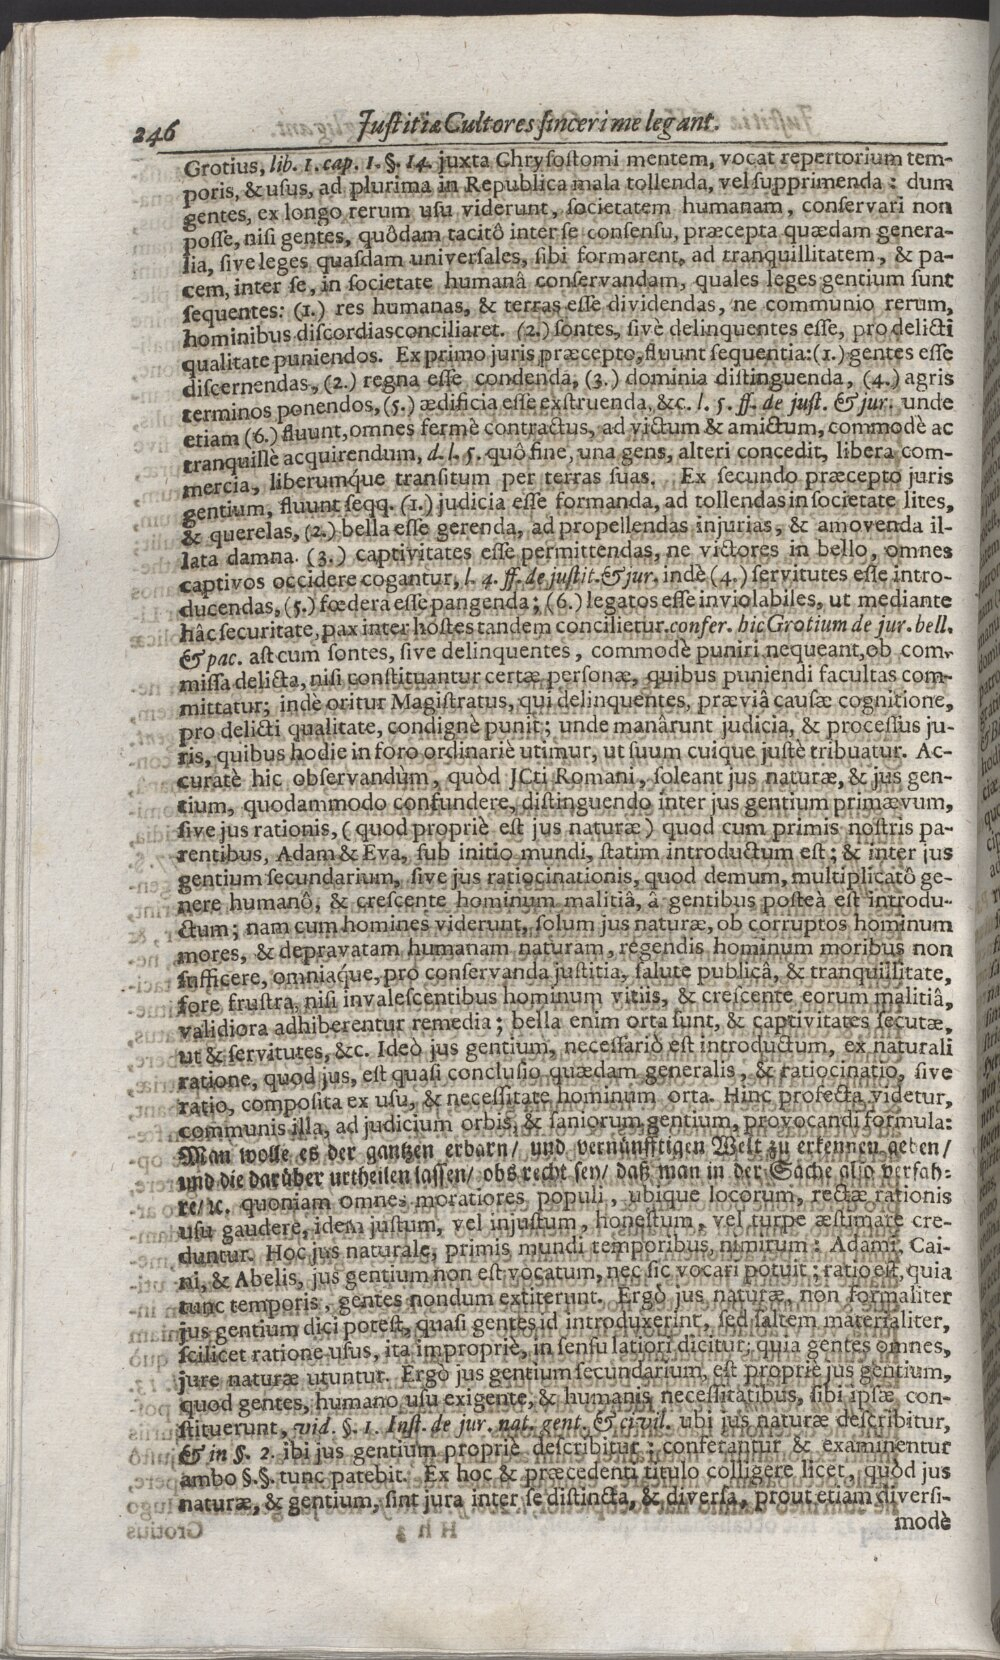 246 Juſtitiæ Cultores ſinceri me legant.
Grotius, lib. 1. cap. 1. §. 14. juxta Chryſoſtomi mentem, vocat repertorium tem-
poris, & uſus, ad plurima in Republica mala tollenda, vel ſupprimenda: dum
gentes, ex longo rerum uſu viderunt, ſocietatem humanam, conſervari non
poſſe, niſi gentes, quôdam tacitô inter ſe conſenſu, præcepta quædam genera-
lia, ſive leges quaſdam univerſales, ſibi formarent, ad tranquillitatem, & pa-
cem, inter ſe, in ſocietate humanâ conſervandam, quales leges gentium ſunt
ſequentes: (1.) res humanas, & terras eſſe dividendas, ne communio rerum,
hominibus diſcordias conciliaret. (2.) ſontes, ſivè delinquentes eſſe, pro delicti
qualitate puniendos. Ex primo juris præcepto, fluunt ſequentia: (1.) gentes eſſe
diſcernendas, (2.) regna eſſe condenda, (3.) dominia diſtinguenda, (4.) agris
terminos ponendos, (5.) ædificia eſſe exſtruenda, &c. l. 5. ff. de juſt. & jur. unde
etiam (6.) fluunt, omnes fermè contractus, ad victum & amictum, commodè ac
tranquillè acquirendum, d. l. 5. quô fine, una gens, alteri concedit, libera com-
mercia, liberumq́ue tranſitum per terras ſuas. Ex ſecundo præcepto juris
gentium, fluunt ſeqq. (1.) judicia eſſe formanda, ad tollendas in ſocietate lites,
& querelas, (2.) bella eſſe gerenda, ad propellendas injurias, & amovenda il-
lata damna. (3.) captivitates eſſe permittendas, ne victores in bello, omnes
captivos occidere cogantur, l. 4. ff. de juſtit. & jur. indè (4.) ſervitutes eſſe intro-
ducendas, (5.) fœdera eſſe pangenda; (6.) legatos eſſe inviolabiles, ut mediante
hâc ſecuritate, pax inter hoſtes tandem concilietur. confer. hic Grotium de jur. bell.
& pac. aſt cum ſontes, ſive delinquentes, commodè puniri nequeant, ob com-
miſſa delicta, niſi conſtituantur certæ perſonæ, quibus puniendi facultas com-
mittatur; indè oritur Magiſtratus, qui delinquentes, præviâ cauſæ cognitione,
pro delicti qualitate, condignè punit; unde manârunt judicia, & proceſſus ju-
ris, quibus hodie in foro ordinariè utimur, ut ſuum cuique juſtè tribuatur. Ac-
curatè hic obſervandùm, quòd JCti Romani, ſoleant jus naturæ, & jus gen-
tium, quodammodo confundere, diſtinguendo inter jus gentium primævum,
ſive jus rationis, (quod propriè eſt jus naturæ) quod cum primis noſtris pa-
rentibus, Adam & Eva, ſub initio mundi, ſtatim introductum eſt; & inter jus
gentium ſecundarium, ſive jus ratiocinationis, quod demum, multiplicatô ge-
nere humanô, & creſcente hominum malitiâ, â gentibus poſteà eſt introdu-
ctum; nam cum homines viderunt, ſolum jus naturæ, ob corruptos hominum
mores, & depravatam humanam naturam, regendis hominum moribus non
ſufficere, omniaq́ue, pro conſervanda juſtitia, ſalute publicâ, & tranquillitate,
fore fruſtra, niſi invaleſcentibus hominum vitiis, & creſcente eorum malitiâ,
validiora adhiberentur remedia; bella enim orta ſunt, & captivitates ſecutæ,
ut & ſervitutes, &c. Ideò jus gentium, neceſſariò eſt introductum, ex naturali
ratione, quod jus, eſt quaſi concluſio quædam generalis, & ratiocinatio, ſive
ratio, compoſita ex uſu, & neceſſitate hominum orta. Hinc profecta videtur,
communis illa, ad judicium orbis, & ſaniorum gentium, provocandi formula:
Man wolle es der gantzen erbarn/ und vernünfftigen Welt zu erkennen geben/
und die darüber urtheilen laſſen/ obs recht ſey/ daß man in der Sache alſo verfah-
re/ ꝛc. quoniam omnes moratiores populi, ubique locorum, rectæ rationis
uſu gaudere, idem juſtum, vel injuſtum, honeſtum, vel turpe æſtimare cre-
duntur. Hoc jus naturale, primis mundi temporibus, nimirum: Adami, Cai-
ni, & Abelis, jus gentium non eſt vocatum, nec ſic vocari potuit; ratio eſt, quia
tunc temporis, gentes nondum extiterunt. Ergò jus naturæ, non formaliter
jus gentium dici poteſt, quaſi gentes id introduxerint, ſed ſaltem materialiter,
ſcilicet ratione uſus, ita impropriè, in ſenſu latiori dicitur; quia gentes omnes,
jure naturæ utuntur. Ergò jus gentium ſecundarium, eſt propriè jus gentium,
quod gentes, humano uſu exigente, & humanis neceſſitatibus, ſibi ipſæ con-
ſtituerunt, vid. §. 1. Inſt. de jur. nat. gent. & civil. ubi jus naturæ deſcribitur,
& in §. 2. ibi jus gentium propriè deſcribitur; conferantur & examinentur
ambo §.§. tunc patebit. Ex hoc & præcedenti titulo colligere licet, quòd jus
naturæ, & gentium, ſint jura inter ſe diſtincta, & diverſa, prout etiam diverſi-
modè